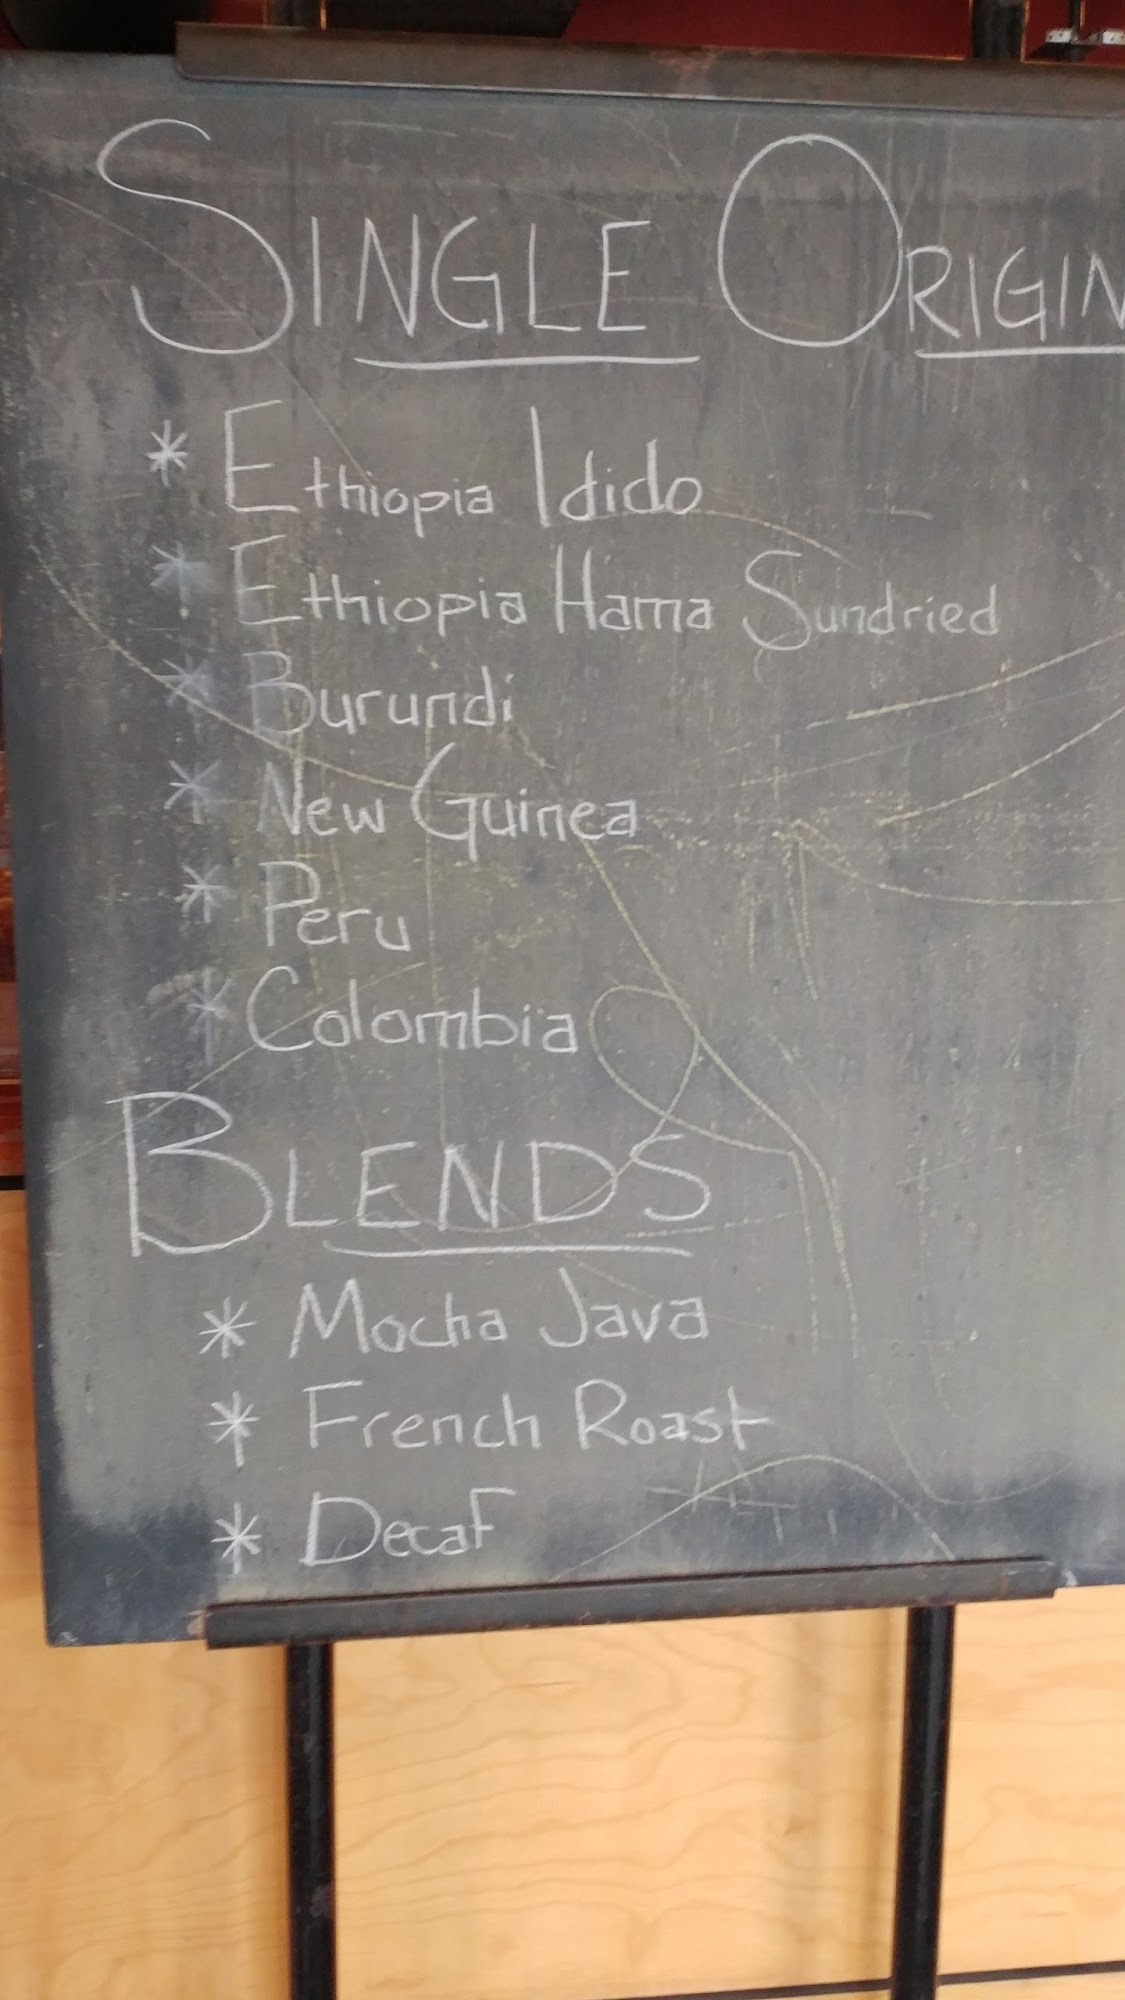 SINGLE ORIGIN
* Ethiopia Idido
* Ethiopia Hama Sundried
* Burundi
* New Guinea
* Peru
* Colombia
BLENDS
* Mocha Java
* French Roast
* Decaf